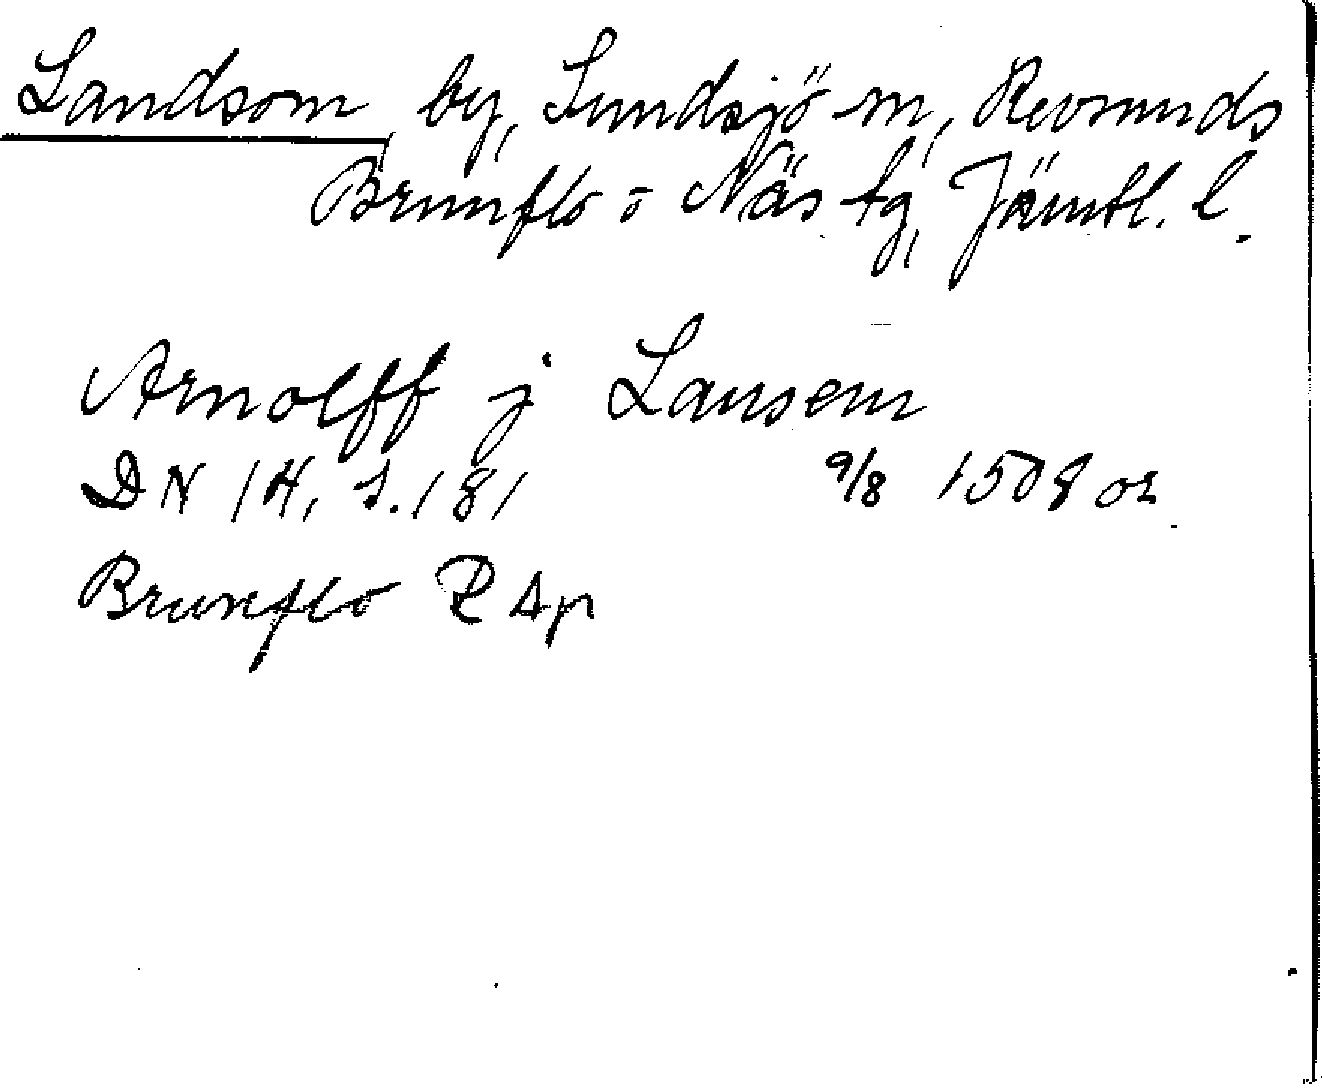 Landsom by, Sundsjö sn, Revsunds
Brunflo o Näs tg, Jämtl. l.
Arnolff j Lansem
DN 14, s. 181 9/8 1508 or.
Brunflo P Ap